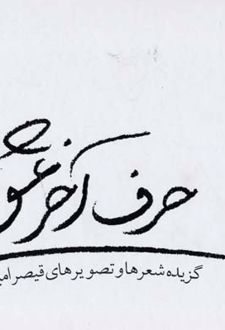 حرف آخر عشق
گزیده شعرها و تصویرهای قیصر امی